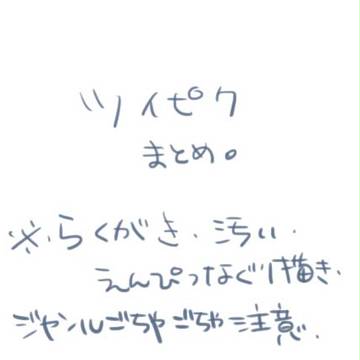 ツイピク
まとめ。
※らくがき、汚い、
えんぴつなぐり描き、
ジャンルごちゃごちゃ注意